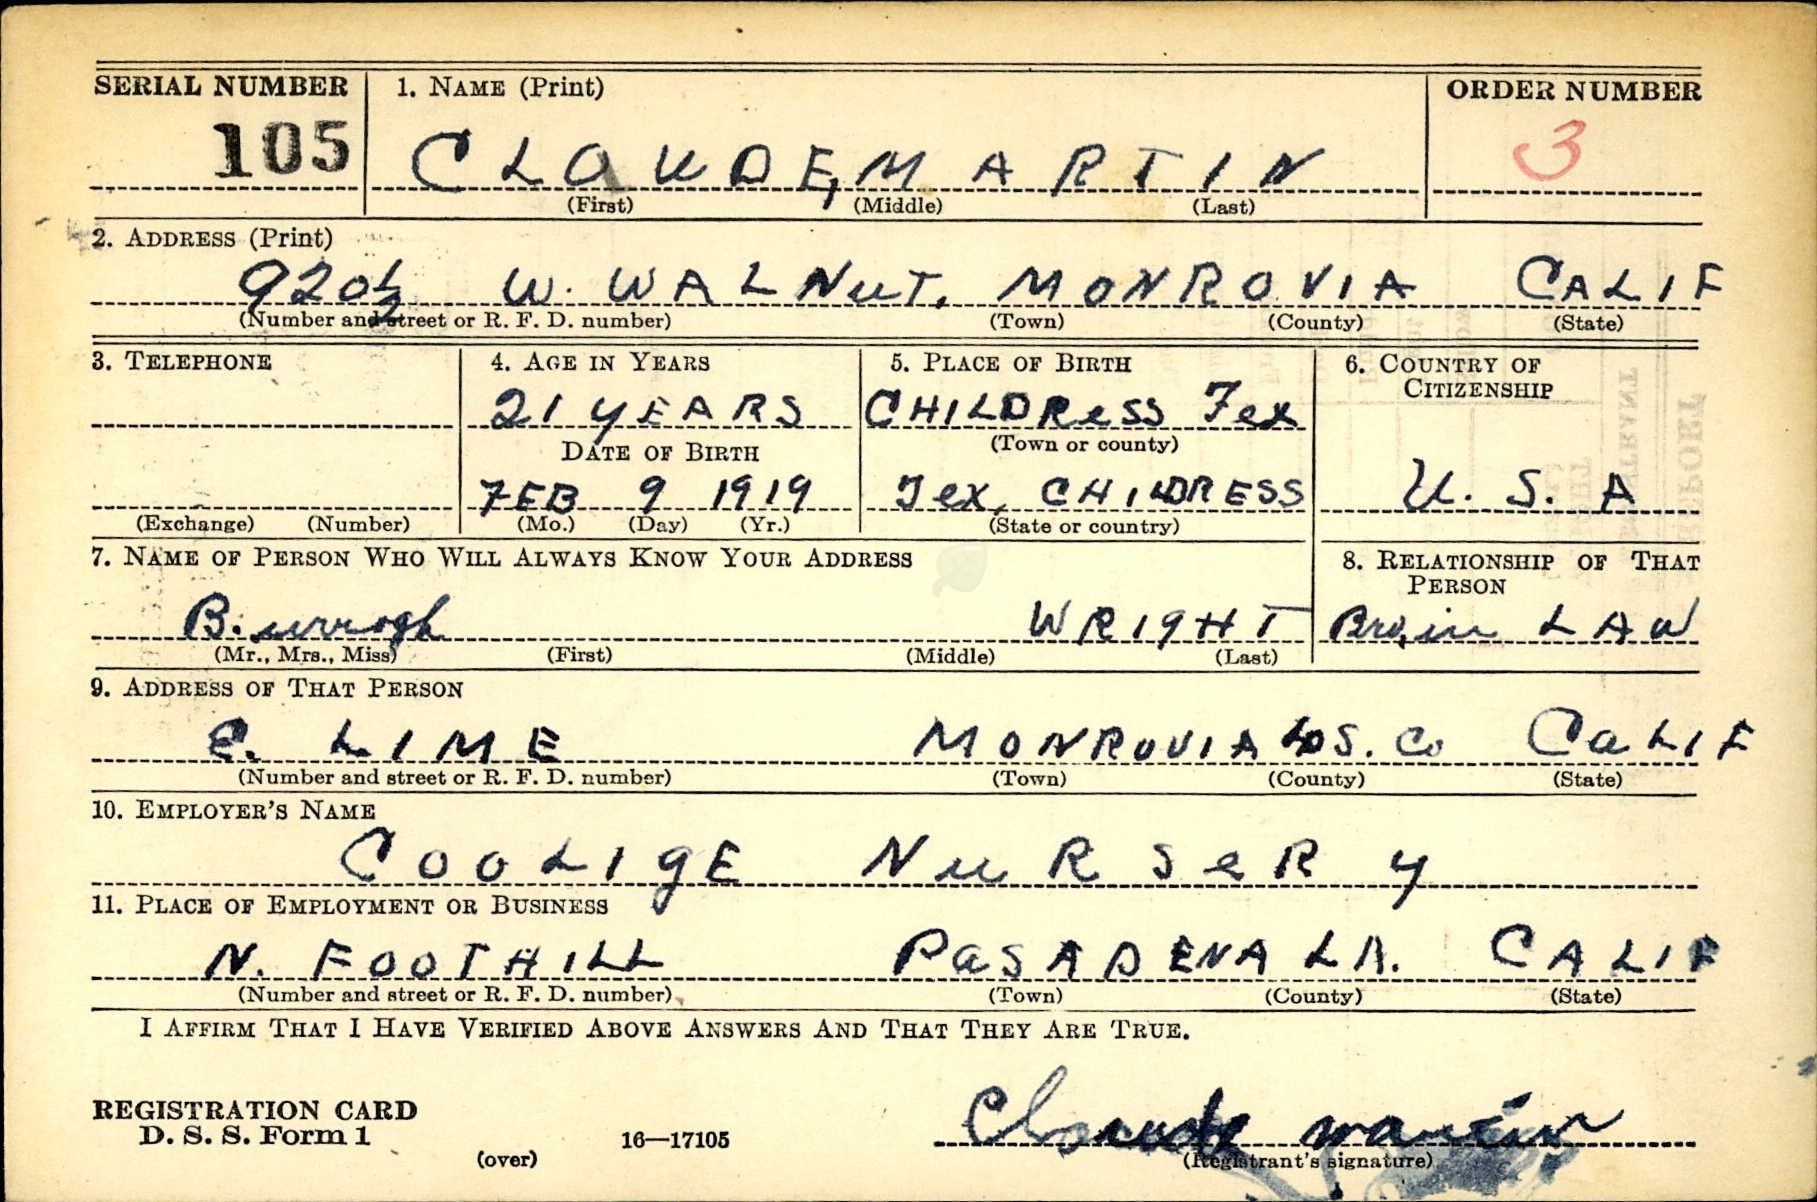 SERIAL NUMBER 1. NAME (Print) ORDER NUMBER
105 CLAUDE, MARTIN 3
(First) (Middle) (Last)
2. ADDRESS (Print)
920 1/2 W. WALNuT, MONROVIA CALIF
(Number and street or R. F. D. number) (Town) (County) (State)
3. TELEPHONE 4. AGE IN YEARS 5. PLACE OF BIRTH 6. COUNTRY OF
CITIZENSHIP
21 yEARS CHILDReSS Tex
DATE OF BIRTH (Town or county)
FEB 9 1919 Tex, CHILDRESS U. S. A
(Exchange) (Number) (Mo.) (Day) (Yr.) (State or country)
7. NAME OF PERSON WHO WILL ALWAYS KNOW YOUR ADDRESS 8. RELATIONSHIP OF THAT
PERSON
WRIgHT Bro, in LAW
(Mr., Mrs., Miss) (First) (Middle) (Last)
9. ADDRESS OF THAT PERSON
E. LIME MONROVIA LOS. Co CaLIF
(Number and street or R. F. D. number) (Town) (County) (State)
10. EMPLOYER'S NAME
COOLIgE NuRSeRy
11. PLACE OF EMPLOYMENT OR BUSINESS
N. FOOTHILL PaSADENA LA. CALIF
(Number and street or R. F. D. number) (Town) (County) (State)
I AFFIRM THAT I HAVE VERIFIED ABOVE ANSWERS AND THAT THEY ARE TRUE.
REGISTRATION CARD
D. S. S. Form 1 16—17105 Claude martin
(over) (Registrant's signature)